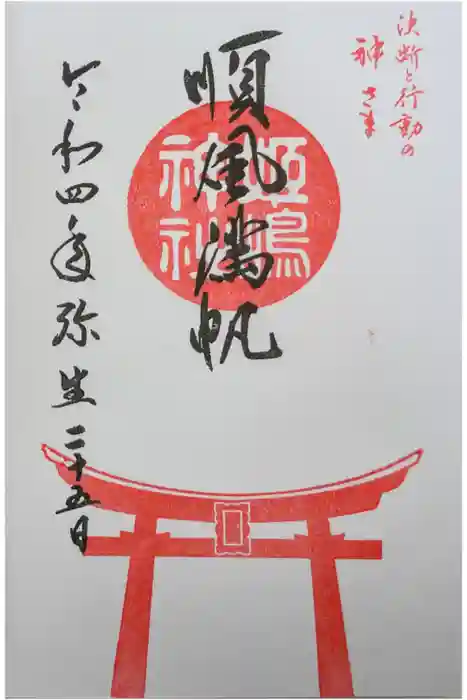 決断と行動の
神さま
順風満帆
姫嶋
神社
令和四年弥生二十五日